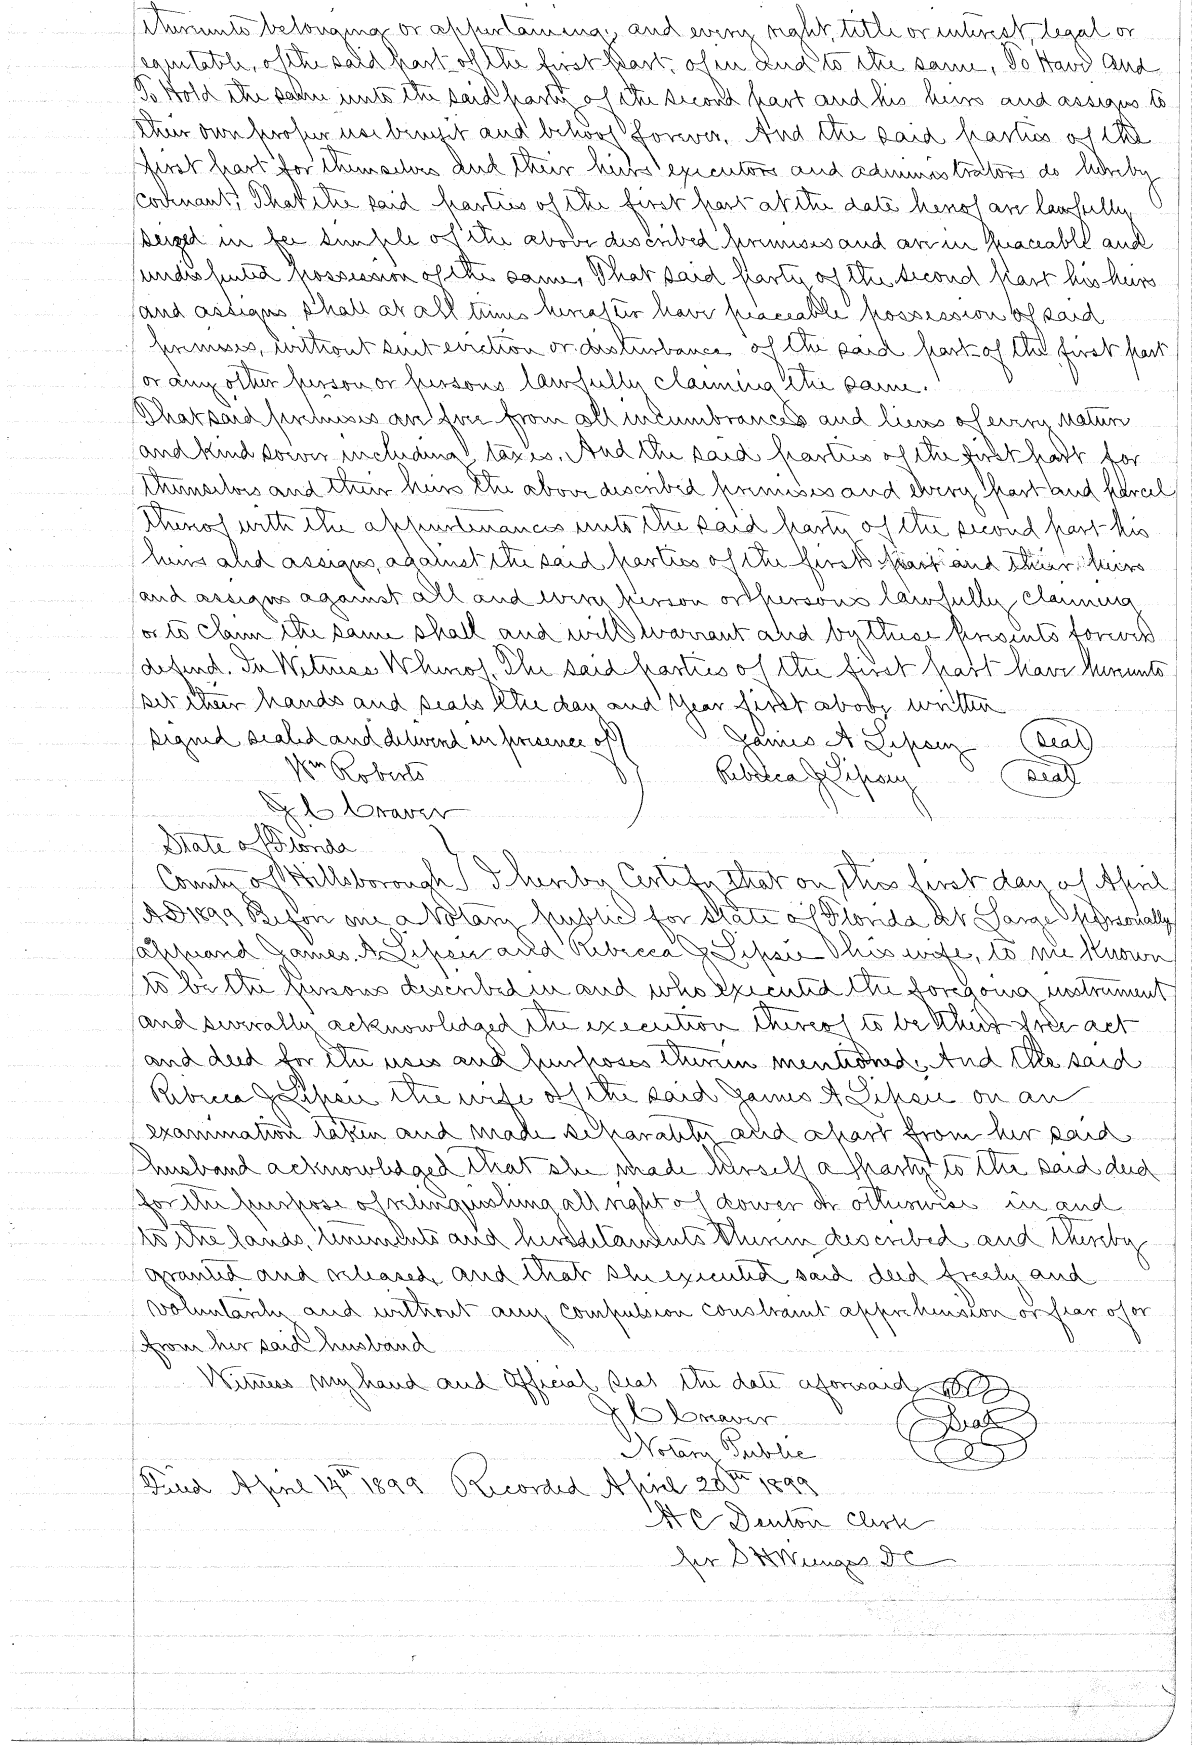 thereunto belonging or appertaining, and every right, title or interest, legal or
equitable, of the said part of the first part, of in and to the same, To Have and
To Hold the same unto the said party of the second part and his heirs and assigns to
their own proper use benefit and behoof forever. And the said parties of the
first part for themselves and their heirs executors and administrators do hereby
covenant; That the said parties of the first part at the date hereof are lawfully
seized in fee simple of the above described premises and are in peaceable and
undisputed possession of the same, That said party of the second part his heirs
and assigns shall at all times hereafter have peaceable possession of said
premises, without suit eviction or disturbance of the said part of the first part
or any other person or persons lawfully claiming the same.
That said premises are free from all incumbrances and liens of every nature
and kind soever including taxes. And the said parties of the first part for
themselves and their heirs the above described premises and every part and parcel
thereof with the appurtenances unto the said party of the second part his
heirs and assigns, against the said parties of the first part and their heirs
and assigns against all and every person or persons lawfully claiming
or to claim the same shall and will warrant and by these presents forever
defend. In Witness Whereof, The said parties of the first part have hereunto
set their hands and seals the day and year first above written
signed sealed and delivered in presence of } James A Lipsey (seal)
Wm Roberts Rebecca J Lipsey (seal)
J C Craver
State of Florida
County of Hillsborough } I hereby Certify that on this first day of April
AD 1899 Before me a Notary public for State of Florida at Large personally
appeard James. A Lipsie and Rebecca J Lipsie his wife, to me known
to be the persons described in and who executed the foregoing instrument
and severally acknowledged the execution thereof to be their free act
and deed for the uses and purposes therein mentioned. And the said
Rebecca J Lipsie the wife of the said James A Lipsie on an
examination taken and made separately and apart from her said
husband acknowledged that she made herself a party to the said deed
for the purpose of relinquishing all right of dower or otherwise in and
to the lands, tenements and hereditaments therein described and thereby
granted and released, and that she executed said deed freely and
voluntarily and without any compulsion constraint apprehension or fear of or
from her said husband
Witness my hand and Official seal the date aforesaid
J C Craver Seal
Notary Public
Filed April 14th 1899 Recorded April 20th 1899
H C Denton Clerk
per D C